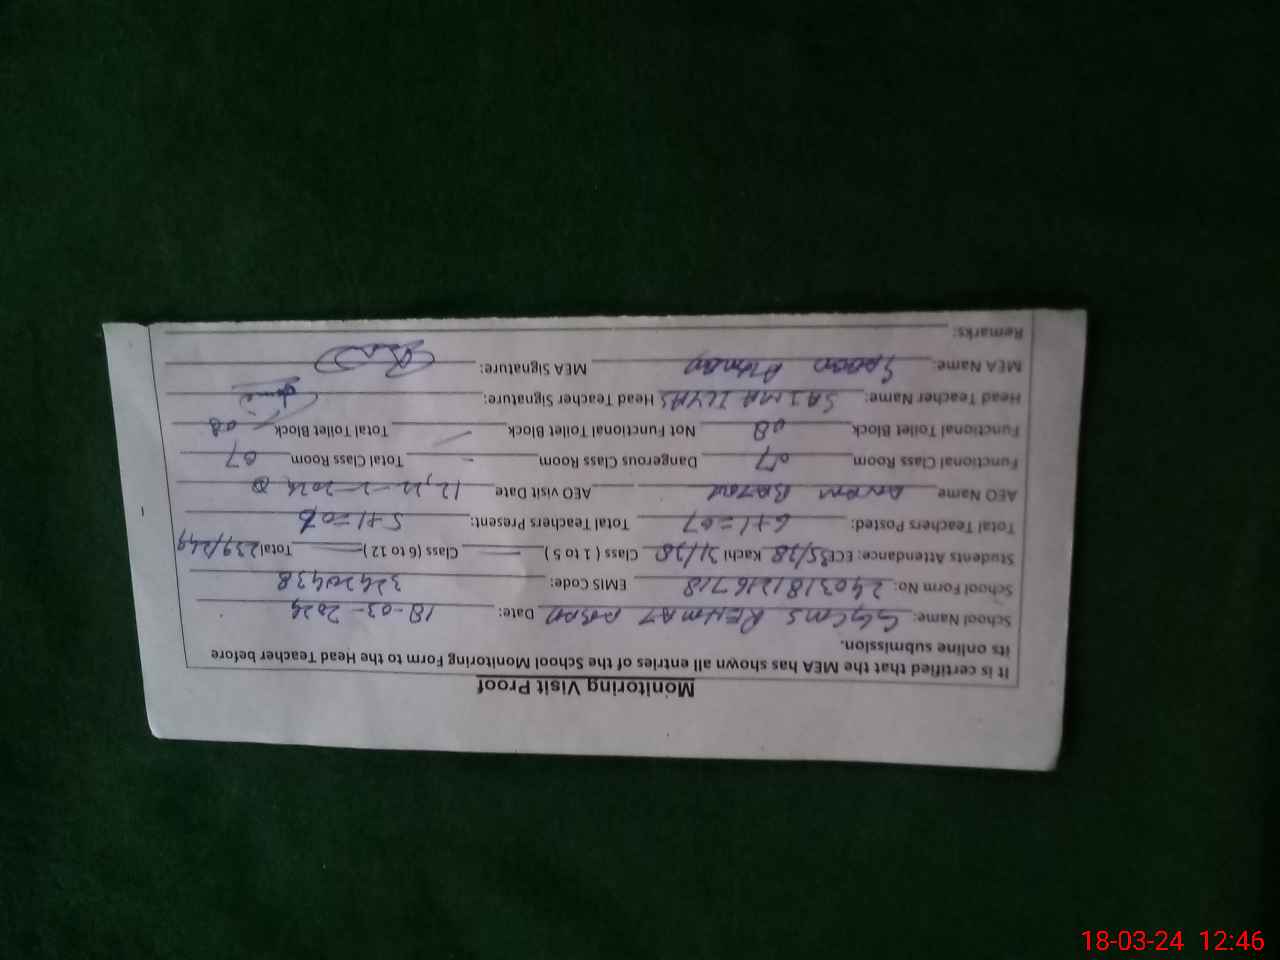 Monitoring Visit Proof
It is certified that the MEA has shown all entries of the School Monitoring Form to the Head Teacher before
its online submission.
School Name: GGCMS REHMAT ABAD Date: 18-03-2024
School Form No: 2403181216718 EMIS Code: 32420438
Students Attendance: ECE 35/38 Kachi 31/38 Class ( 1 to 5 ) Class (6 to 12 ) Total 239/249
Total Teachers Posted: 6+1=07 Total Teachers Present: 5+1=06
AEO Name AEO visit Date 12,22-2-2024
Functional Class Room 07 Dangerous Class Room - Total Class Room 07
Functional Toilet Block 08 Not Functional Toilet Block Total Toilet Block 08
Head Teacher Name: SAIMA ILYAS Head Teacher Signature:
MEA Name: MEA Signature:
Remarks:
18-03-24 12:46